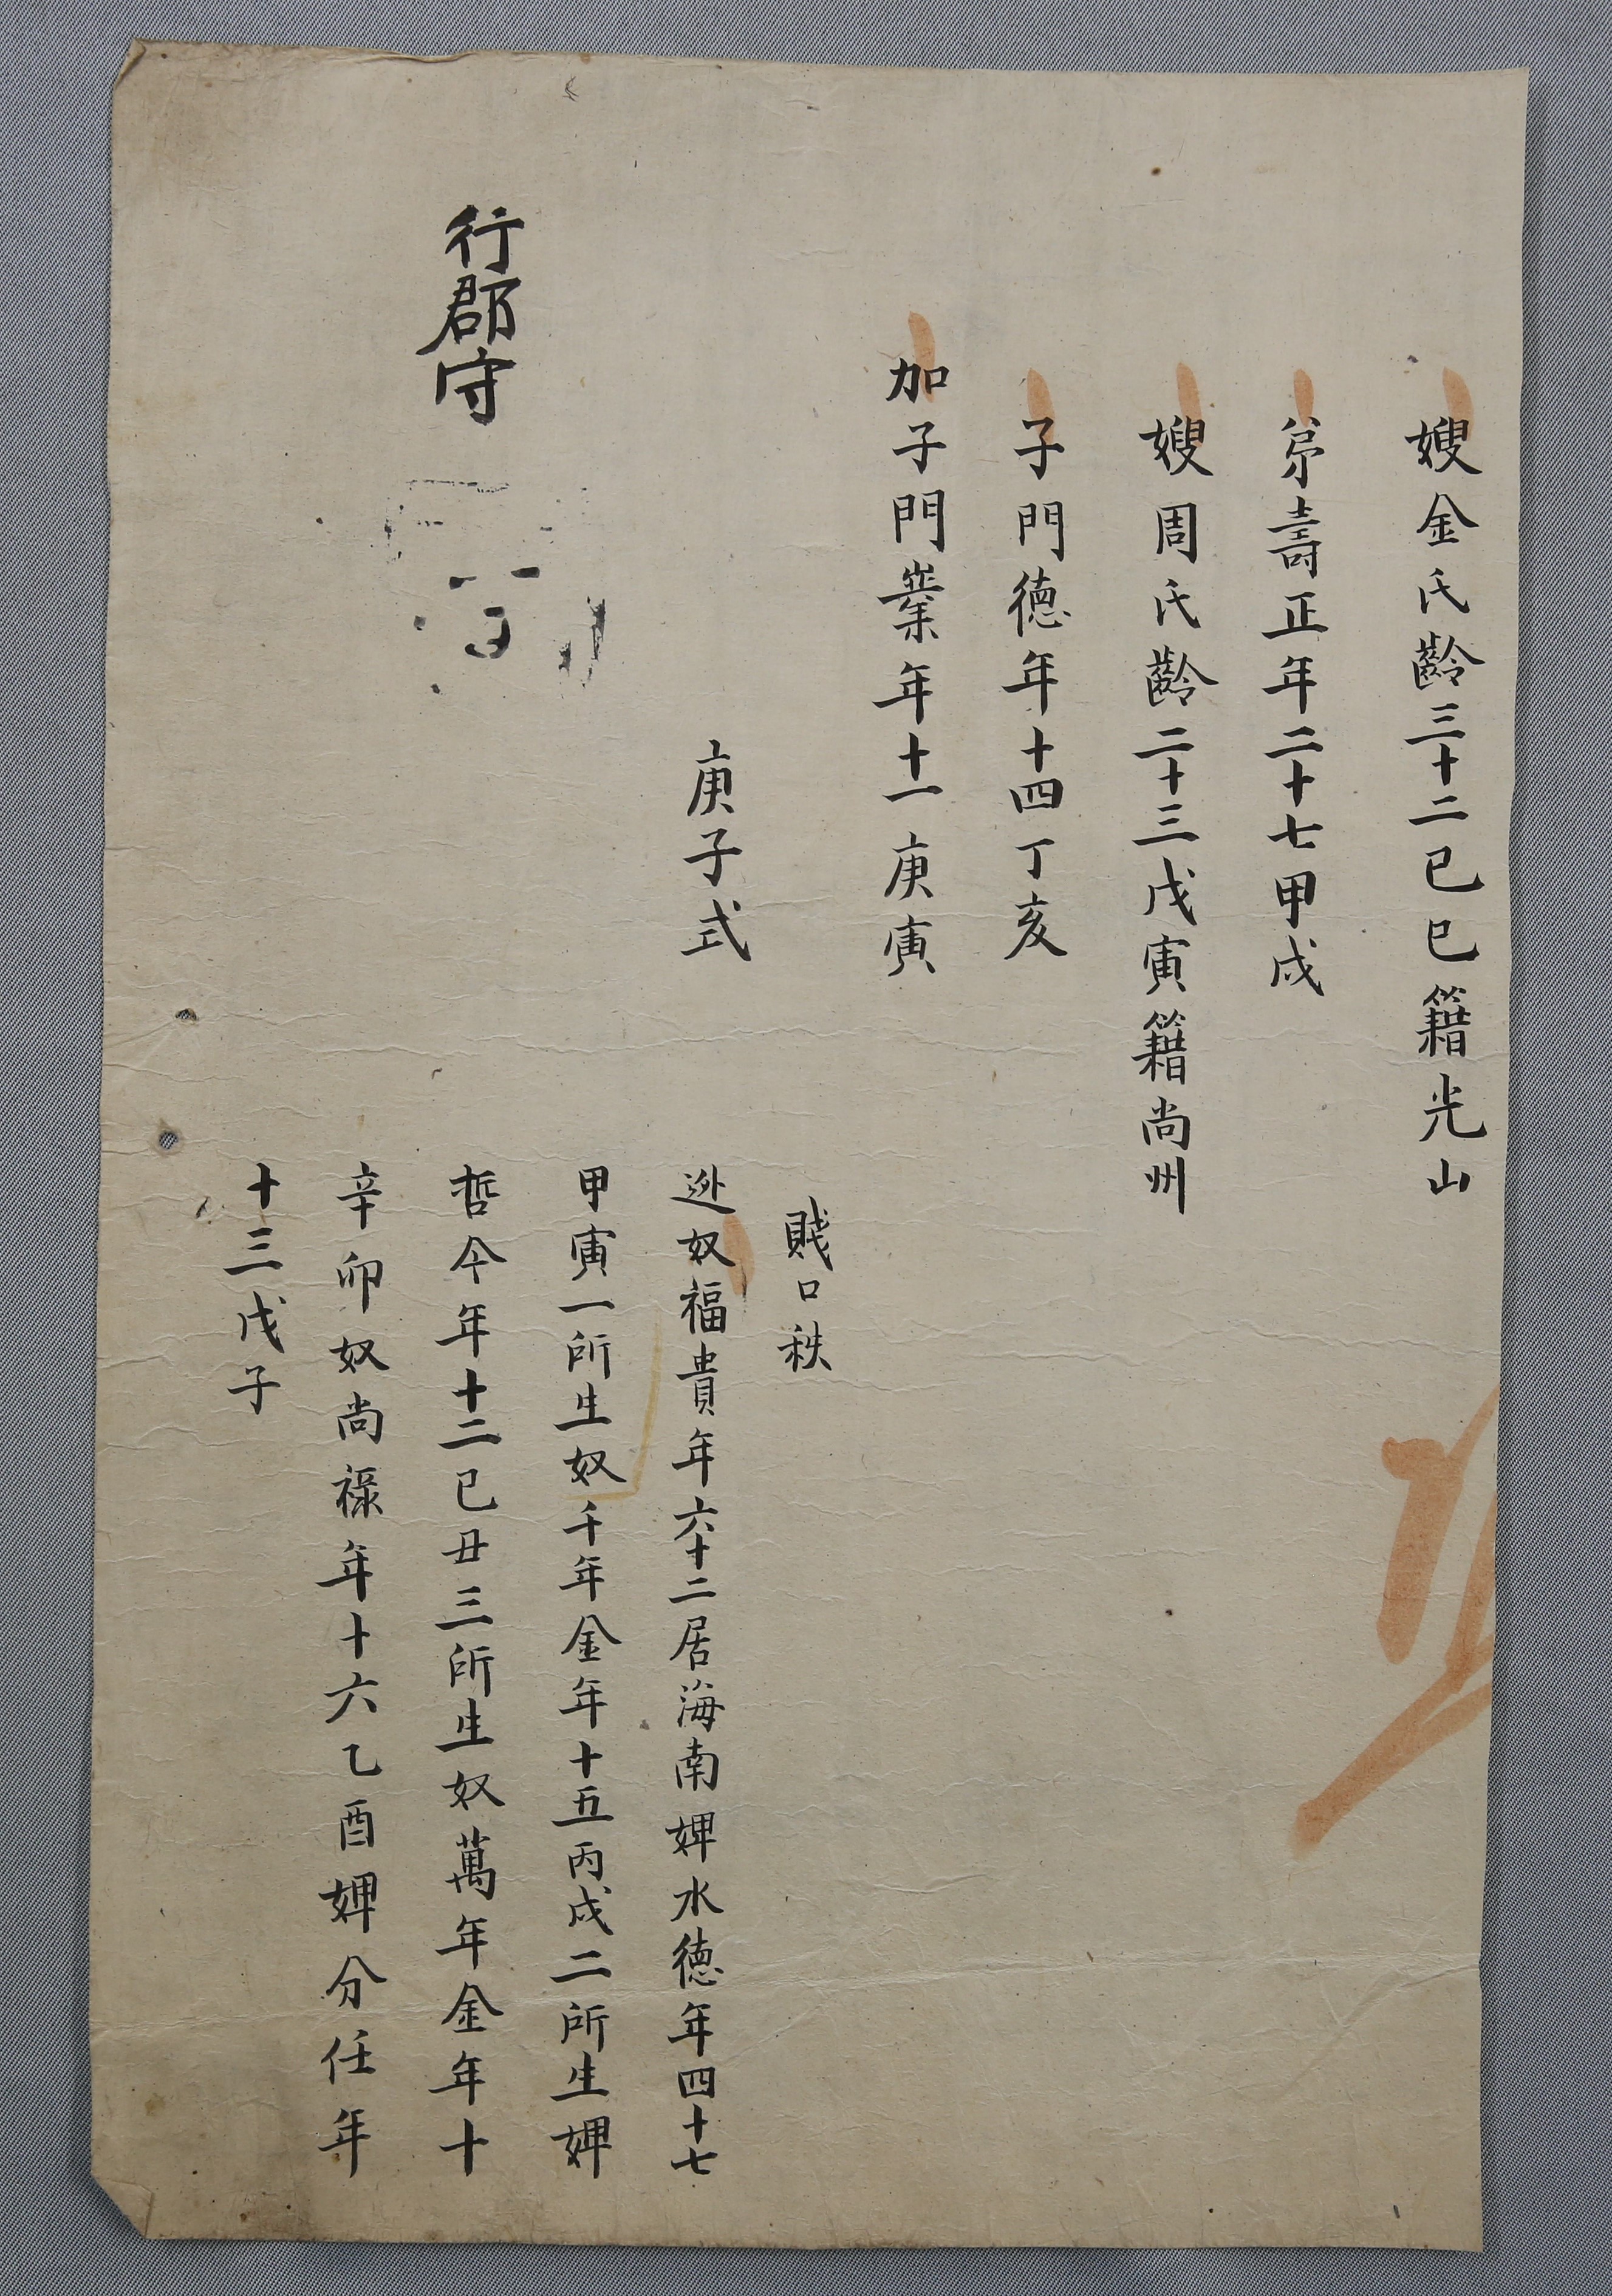 嫂金氏齡三十二己巳籍光山
弟壽正年二十七甲戌
嫂周氏齡二十三戊寅籍尚州
子門德年十四丁亥
加子門業年十一庚寅
賤口秩
逃奴福貴年六十二居海南婢水德年四十七
甲寅一所生奴千年金年十五丙戌二所生婢
哲今年十二己丑三所生奴萬年金年十
辛卯奴尚祿年十六乙酉婢分任年
十三戊子
庚子式
行郡守